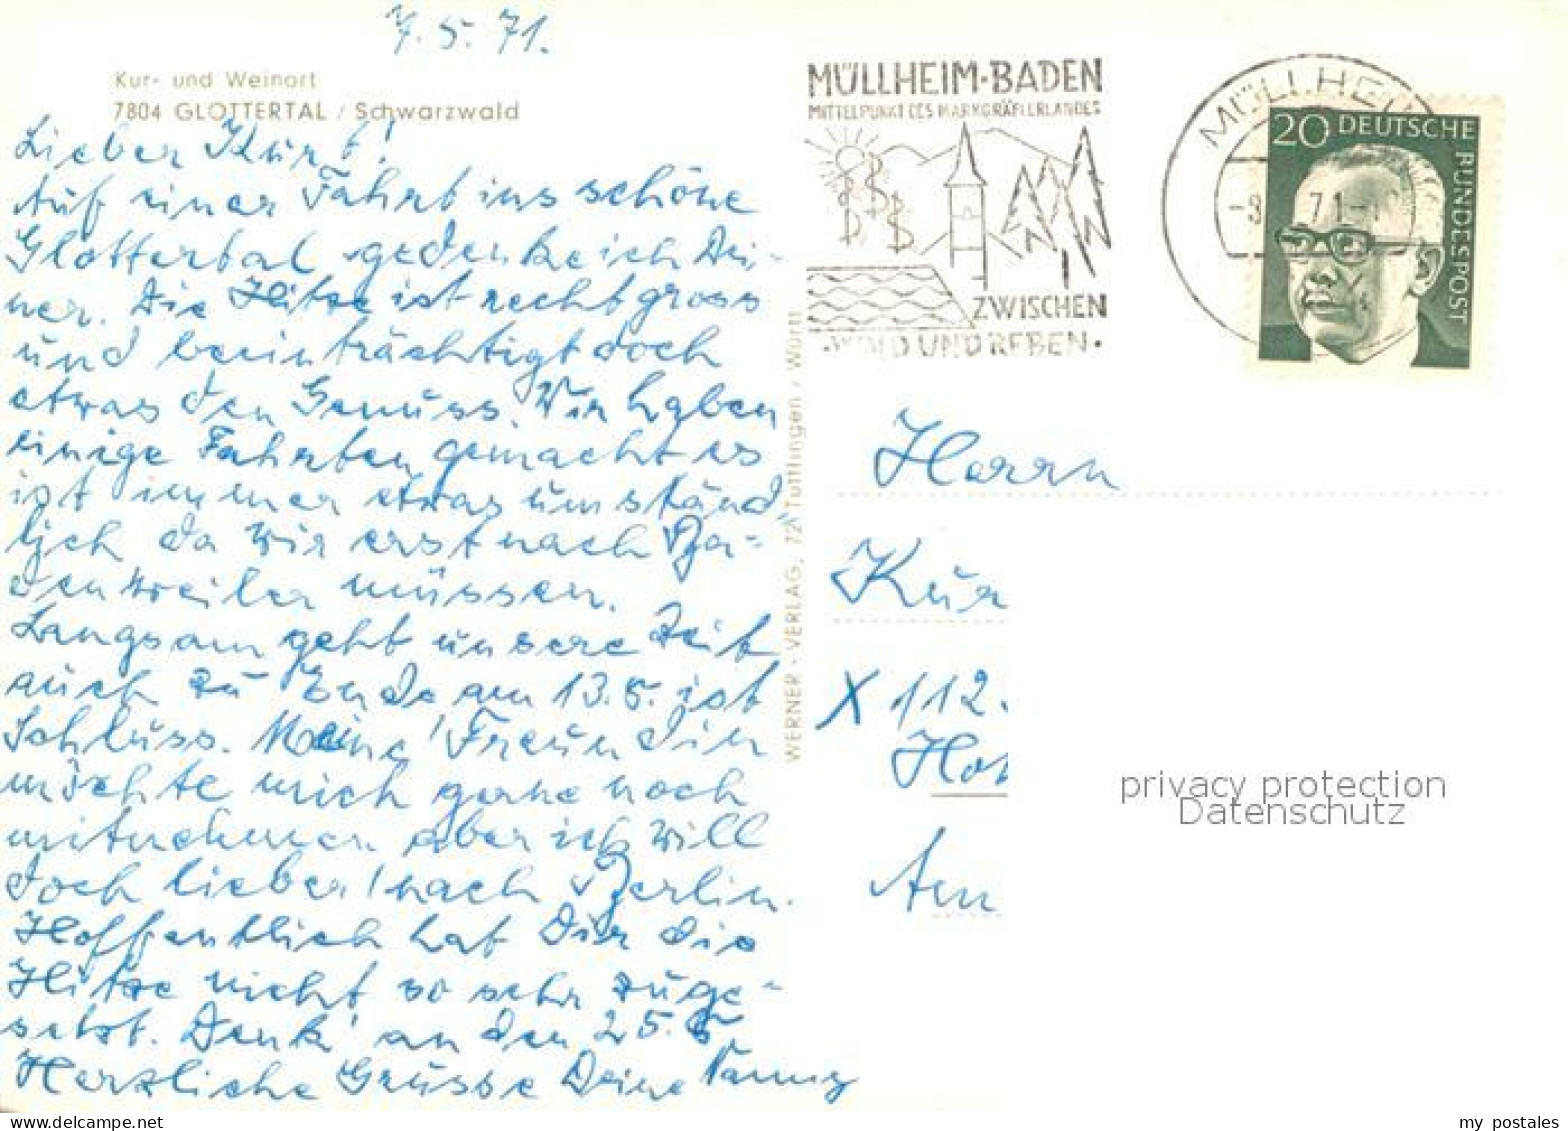 7.5.71.
Kur- und Weinort
7804 GLOTTERTAL / Schwarzwald
Lieber Kurt!
Auf einer Fahrt ins schöne
Glottertal gedenke ich Dei-
ner. Die Hitze ist recht gross
und beeinträchtigt doch
etwas den Genuss. Wir haben
einige Fahrten gemacht es
ist immer etwas umständ-
lich da wir erst nach Ba-
denweiler müssen.
Langsam geht unsere Zeit
auch zu Ende am 13.5. ist
Schluss. Meine Freundin
möchte mich gerne noch
mitnehmen aber ich will
doch lieber nach Berlin.
Hoffentlich hat Dir die
Hitze nicht so sehr zuge-
setzt. Denk' an den 25.5
Herzliche Grüsse Deine Nanny
WERNER - VERLAG, 72 Tuttlingen / Württ
MÜLLHEIM-BADEN
MITTELPUNKT DES MARKGRÄFLERLANDES
ZWISCHEN
WALD UND REBEN
MÜLLHEIM
-8 71-
20 DEUTSCHE
BUNDESPOST
Herrn
Kur
X 112.
Am
privacy protection
Datenschutz
my postales